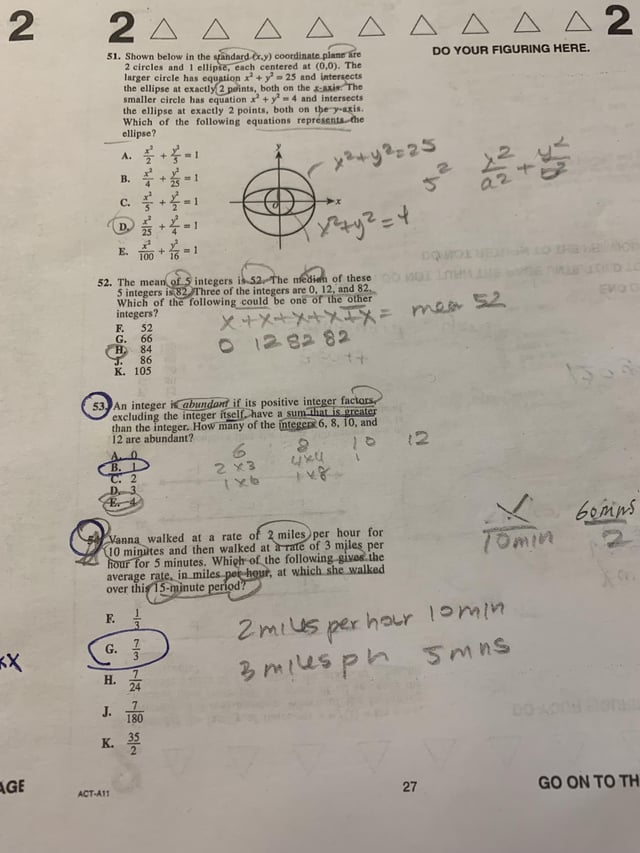 2 2 2
DO YOUR FIGURING HERE.
51. Shown below in the standard (x,y) coordinate plane are
2 circles and 1 ellipse, each centered at (0,0). The
larger circle has equation x² + y² = 25 and intersects
the ellipse at exactly 2 points, both on the x-axis. The
smaller circle has equation x² + y² = 4 and intersects
the ellipse at exactly 2 points, both on the y-axis.
Which of the following equations represents the
ellipse?
A. x²/2 + y²/5 = 1
B. x²/4 + y²/25 = 1
C. x²/5 + y²/2 = 1
D. x²/25 + y²/4 = 1
E. x²/100 + y²/16 = 1
y
x
O
x²+y²=25
5²
x²/a² + y²/b²
x²+y²=4
52. The mean of 5 integers is 52. The median of these
5 integers is 82. Three of the integers are 0, 12, and 82.
Which of the following could be one of the other
integers?
F. 52
G. 66
H. 84
J. 86
K. 105
x+x+x+x+x= mean 52
0 12 82 82
53. An integer is abundant if its positive integer factors,
excluding the integer itself, have a sum that is greater
than the integer. How many of the integers 6, 8, 10, and
12 are abundant?
A. 0
B. 1
C. 2
D. 3
E. 4
6 8 10 12
2x3 4x4 1
1x6 1x8
54. Vanna walked at a rate of 2 miles per hour for
10 minutes and then walked at a rate of 3 miles per
hour for 5 minutes. Which of the following gives the
average rate, in miles per hour, at which she walked
over this 15-minute period?
F. 1/3
G. 7/3
H. 7/24
J. 7/180
K. 35/2
x/10min 60mins/2
2 miles per hour 10min
3 miles ph 5mns
AGE
ACT-A11
27
GO ON TO TH